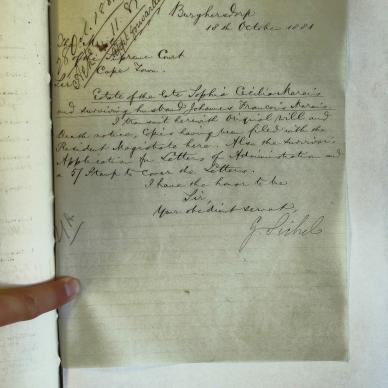 Burghersdorp
18th October 1881
The Master
of the Supreme Court
Cape Town.
Sir
Estate of the late Sophia Cecilia Marais
and surviving husband Johannes Francois Marais.
I transmit herewith Original Will and
Death notice, Copies having been filed with the
Resident Magistrate here. Also the survivor's
Application for Letters of Administration and
a 5/ Stamp to cover the Letters.
I have the honor to be
Sir
Your obedient servant